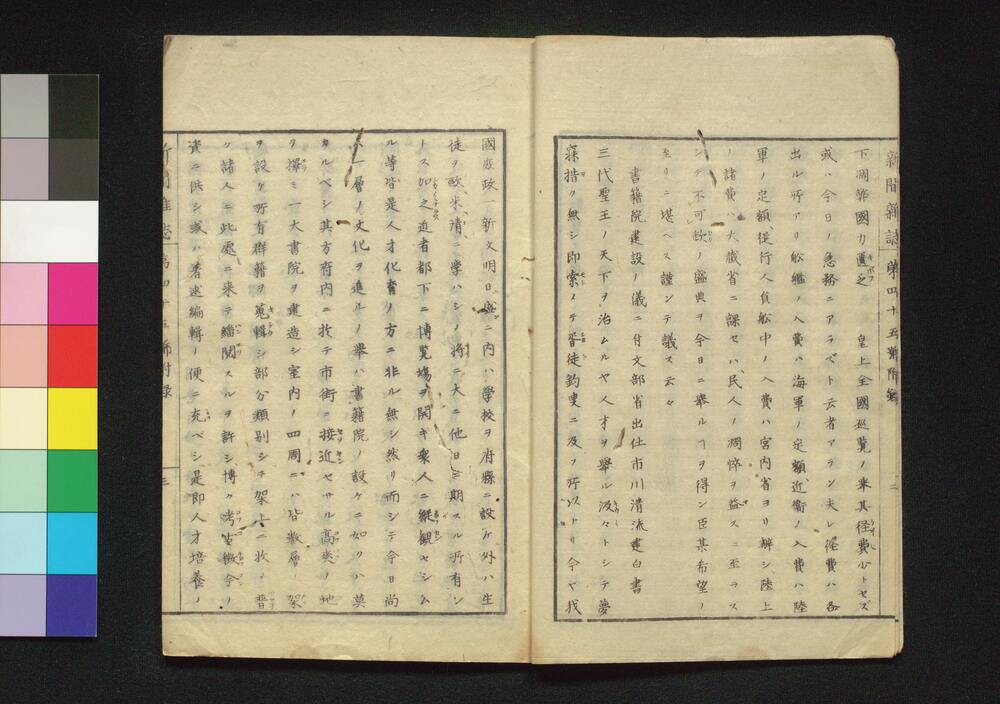 新聞雜誌第四十五號附錄 二
下凋弊國力匱乏　皇上全國巡覧ノ事其径費少トセズ
或ハ今日ノ急務ニアラズト云者アラン夫レ径費ハ各
出ル所アリ舩艦ノ入費ハ海軍ノ定額近衛ノ入費ハ陸
軍ノ定額従行人負舩中ノ入費ハ宮内省ヨリ辨シ陸上
ノ諸費ハ大蔵省ニ課セハ民人ノ凋悴ヲ益スニ至ラス
シテ不可欤ノ盛典ヲ今日ニ舉ルヿヲ得ン臣某希望ノ
至リニ堪ヘス謹ンテ議ス云々
書籍院建設ノ儀ニ付文部省出仕市川清流建白書
三代聖王ノ天下ヲ治ムルヤ人才ヲ舉ル汲々トシテ夢
寐措ク無シ即索メテ胥徒釣叟ニ及フ所以トリ今ヤ我
國庶政一新文明日盛ニ内ハ學校ヲ府縣ニ設ケ外ハ生
徒ヲ欧米清ニ學ハシノ将ニ大ニ他日ニ期スル所有ン
ース加之近者都下ニ博覧塲ヲ開キ衆人ニ縦観セシム
ル等皆是人才化育ノ方ニ非ル無シ然リ而シテ今日尚
一層ノ文化ヲ進ルノ舉ハ書籍院ノ設ケニ如クハ莫
カルベシ其方府内ニ於テ市街ニ接近セサル高爽ノ地
ヲ擇ミ一大書院ヲ建造シ室内ノ四周ニハ皆数層ノ架
ヲ設ケ所有群籍ヲ蒐輯シ部分類別シテ架上ニ収ノ普
ク諸人ニ此處ニ来テ繙閲スルヲ許シ博ク考古徴今ノ
資ニ供シ或ハ著述編輯ノ便ニ充ベシ是即人才培養ノ
新聞雜誌第四十五號附錄 三